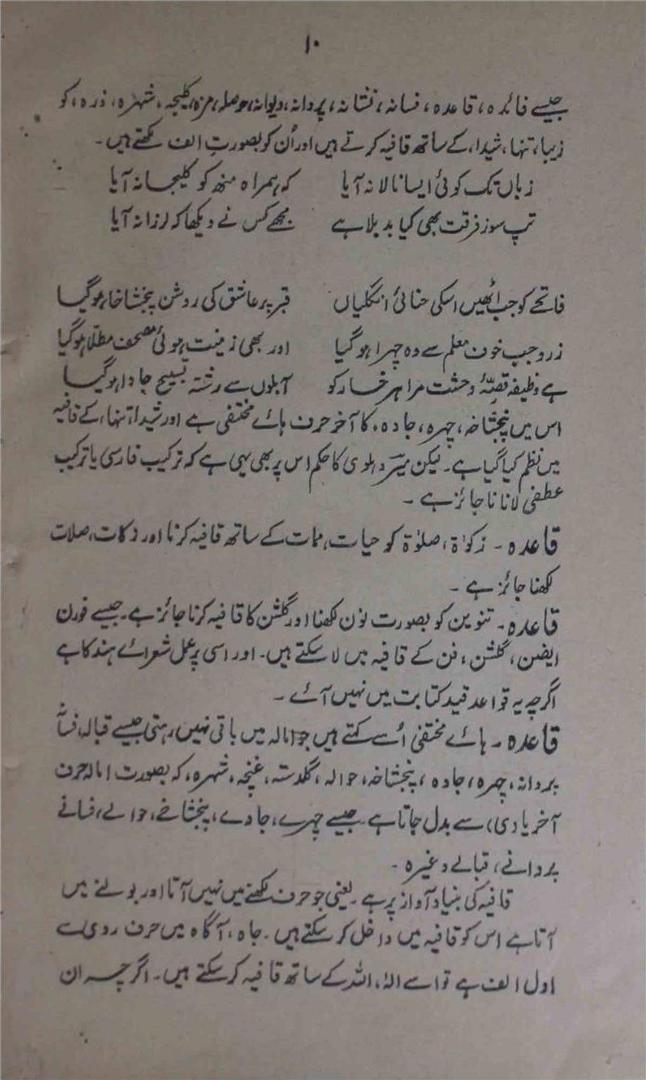 ۱۰
جیسے فائدہ، قاعدہ، فسانہ، نشانہ، پروانہ، دیوانہ، حوصلہ، مزہ، کلیجہ، شہرہ، ذرہ، کو
زیبا، تنہا، شیدا، کے ساتھ قافیہ کرتے ہیں اور اُن کو بصورتِ الف لکھتے ہیں۔
زباں تک کوئی ایسا نالا نہ آیا کہ ہمراہ منھ کو کلیجا نہ آیا
تپ سوز فرقت بھی کیا بد بلا ہے مجھے کس نے دیکھا کہ لرزا نہ آیا
فاتحے کو جب اٹھیں اسکی حنائی انگلیاں قبر پر عاشق کی روشن پنجشاخا ہوگیا
زرد جب خون معلم سے وہ چہرا ہوگیا اور بھی زینت ہوئی مصحف مطلّا ہوگیا
ہے وظیفہ قصّۂ وحشت مرا ہر خار کو آبلوں سے رشتہ تسبیح جادا ہوگیا
اس میں پنجشاخہ، چہرہ، جادہ، کا آخر حرف ہائے مختفی ہے اور شیدا، تنہا، کے قافیہ
میں نظم کیا گیا ہے۔ لیکن میر دہلوی کا حکم اس پر بھی یہی ہے کہ ترکیب فارسی یا ترکیب
عطفی لانا ناجائز ہے۔
قاعدہ۔ زکوٰۃ، صلوٰۃ کو حیات، ممات کے ساتھ قافیہ کرنا اور زکات، صلات
لکھنا جائز ہے۔
قاعدہ۔ تنوین کو بصورت نون لکھنا اور گلشن کا قافیہ کرنا جائز ہے۔ جیسے فورن
ایضن، گلشن، فن کے قافیہ میں لا سکتے ہیں۔ اور اسی پر عمل شعرائے ہند کا ہے
اگرچہ یہ قواعد قید کتابت میں نہیں آئے۔
قاعدہ۔ ہائے مختفی اُسے کہتے ہیں جو امالہ میں باقی نہیں رہتی جیسے قبالہ، فسانہ
پروانہ، چہرہ، جادہ، پنجشاخہ، حوالہ، گلدستہ، غنچہ، شہرہ، کہ بصورت امالہ حرف
آخر یا (ی) سے بدل جاتا ہے۔ جیسے چہرے، جادے، پنجشاخے، حوالے، فسانے
پروانے، قبالے وغیرہ۔
قافیہ کی بنیاد آواز پر ہے۔ یعنی جو حرف لکھنے میں نہیں آتا اور بولنے میں
آتا ہے اس کو قافیہ میں داخل کر سکتے ہیں۔ جاہ، آگاہ میں حرف روی سے
اول الف ہے تو اسے الہٰ، اللہ کے ساتھ قافیہ کر سکتے ہیں۔ اگرچہ ان